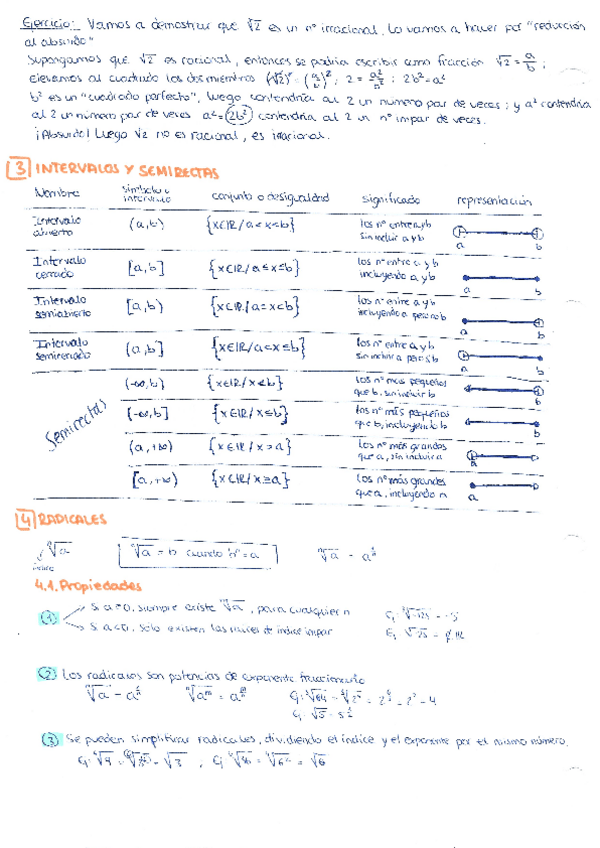 Ejercicio: Vamos a demostrar que √2 es un nº irracional. Lo vamos a hacer por "reducción
al absurdo"
Supongamos que √2 es racional, entonces se podría escribir como fracción √2 = a/b ;
elevamos al cuadrado los dos miembros (√2)² = (a/b)² ; 2 = a²/b² ; 2b² = a²
b² es un "cuadrado perfecto", luego contendría al 2 un número par de veces; y a² contendría
al 2 un número par de veces a² = 2b² contendría al 2 un nº impar de veces.
¡Absurdo! Luego √2 no es racional, es irracional.
3 INTERVALOS Y SEMIRECTAS
Nombre símbolo o intervalo conjunto o desigualdad significado representación
Intervalo abierto (a, b) {x∈IR / a < x < b} los nº entre a y b sin incluir a y b a b
Intervalo cerrado [a, b] {x∈IR / a ≤ x ≤ b} los nº entre a y b incluyendo a y b a b
Intervalo semiabierto [a, b) {x∈IR / a = x < b} los nº entre a y b incluyendo a pero no b a b
Intervalo semicerrado (a, b] {x∈IR / a < x ≤ b} los nº entre a y b sin incluir a pero sí b a b
Semirectas
(-∞, b) {x∈IR / x < b} los nº más pequeños que b, sin incluir b b
(-∞, b] {x∈IR / x ≤ b} los nº más pequeños que b, incluyendo b b
(a, +∞) {x∈IR / x > a} los nº más grandes que a, sin incluir a a
[a, +∞) {x∈IR / x ≥ a} los nº más grandes que a, incluyendo a
4 RADICALES
ⁿ√a ⁿ√a = b cuando bⁿ = a ⁿ√a = a^(1/n)
índice
4.1. Propiedades
1 Si a > 0, siempre existe ⁿ√a, para cualquier n
Si a < 0, sólo existen las raíces de índice impar
2 Los radicales son potencias de exponente fraccionario
ⁿ√a = a^(1/n) ⁿ√a^m = a^(m/n)
3 Se pueden simplificar radicales, dividiendo el índice y el exponente por el mismo número.